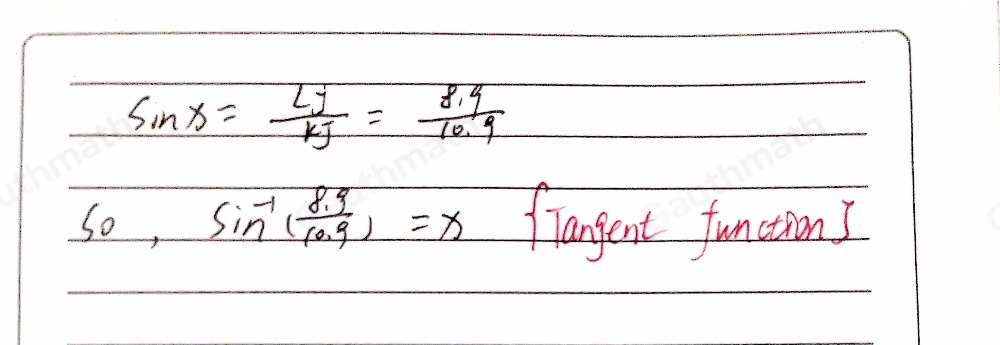 Sin x = LJ/KJ = 8.9/10.9
So, Sin⁻¹(8.9/10.9) = x {Tangent function}